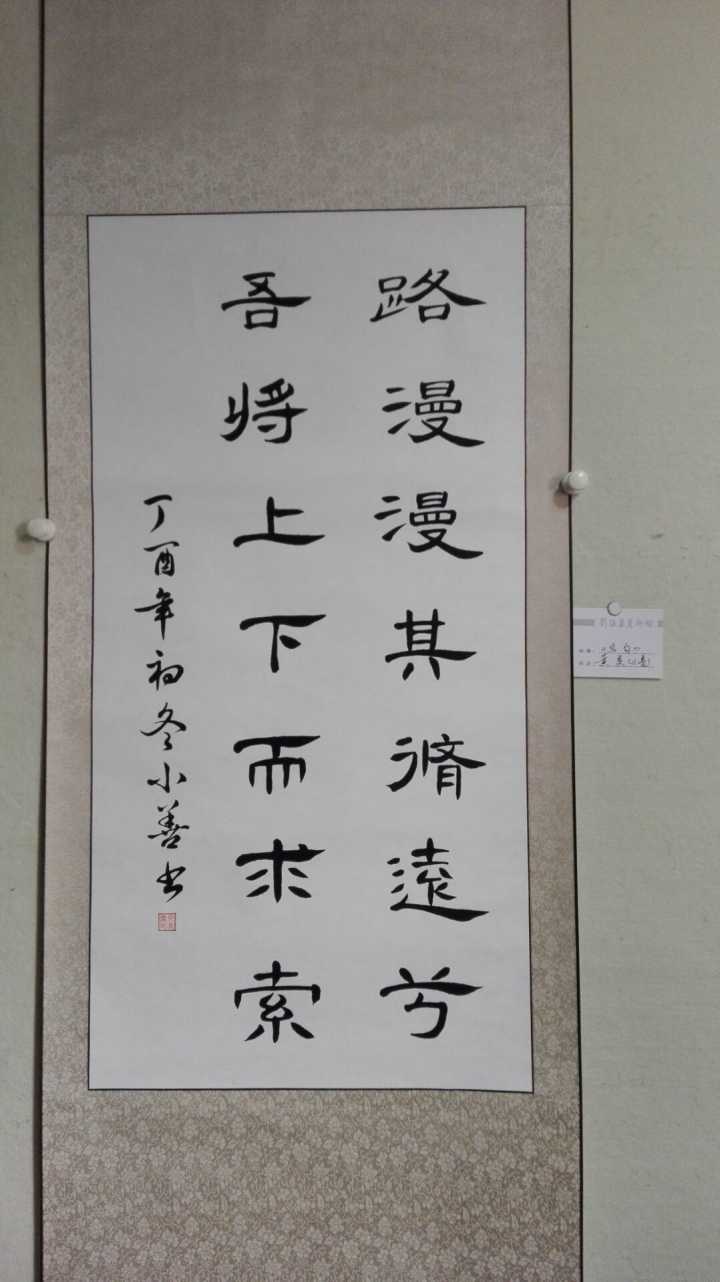 路漫漫其脩遠兮
吾将上下而求索
丁酉年初冬小善书